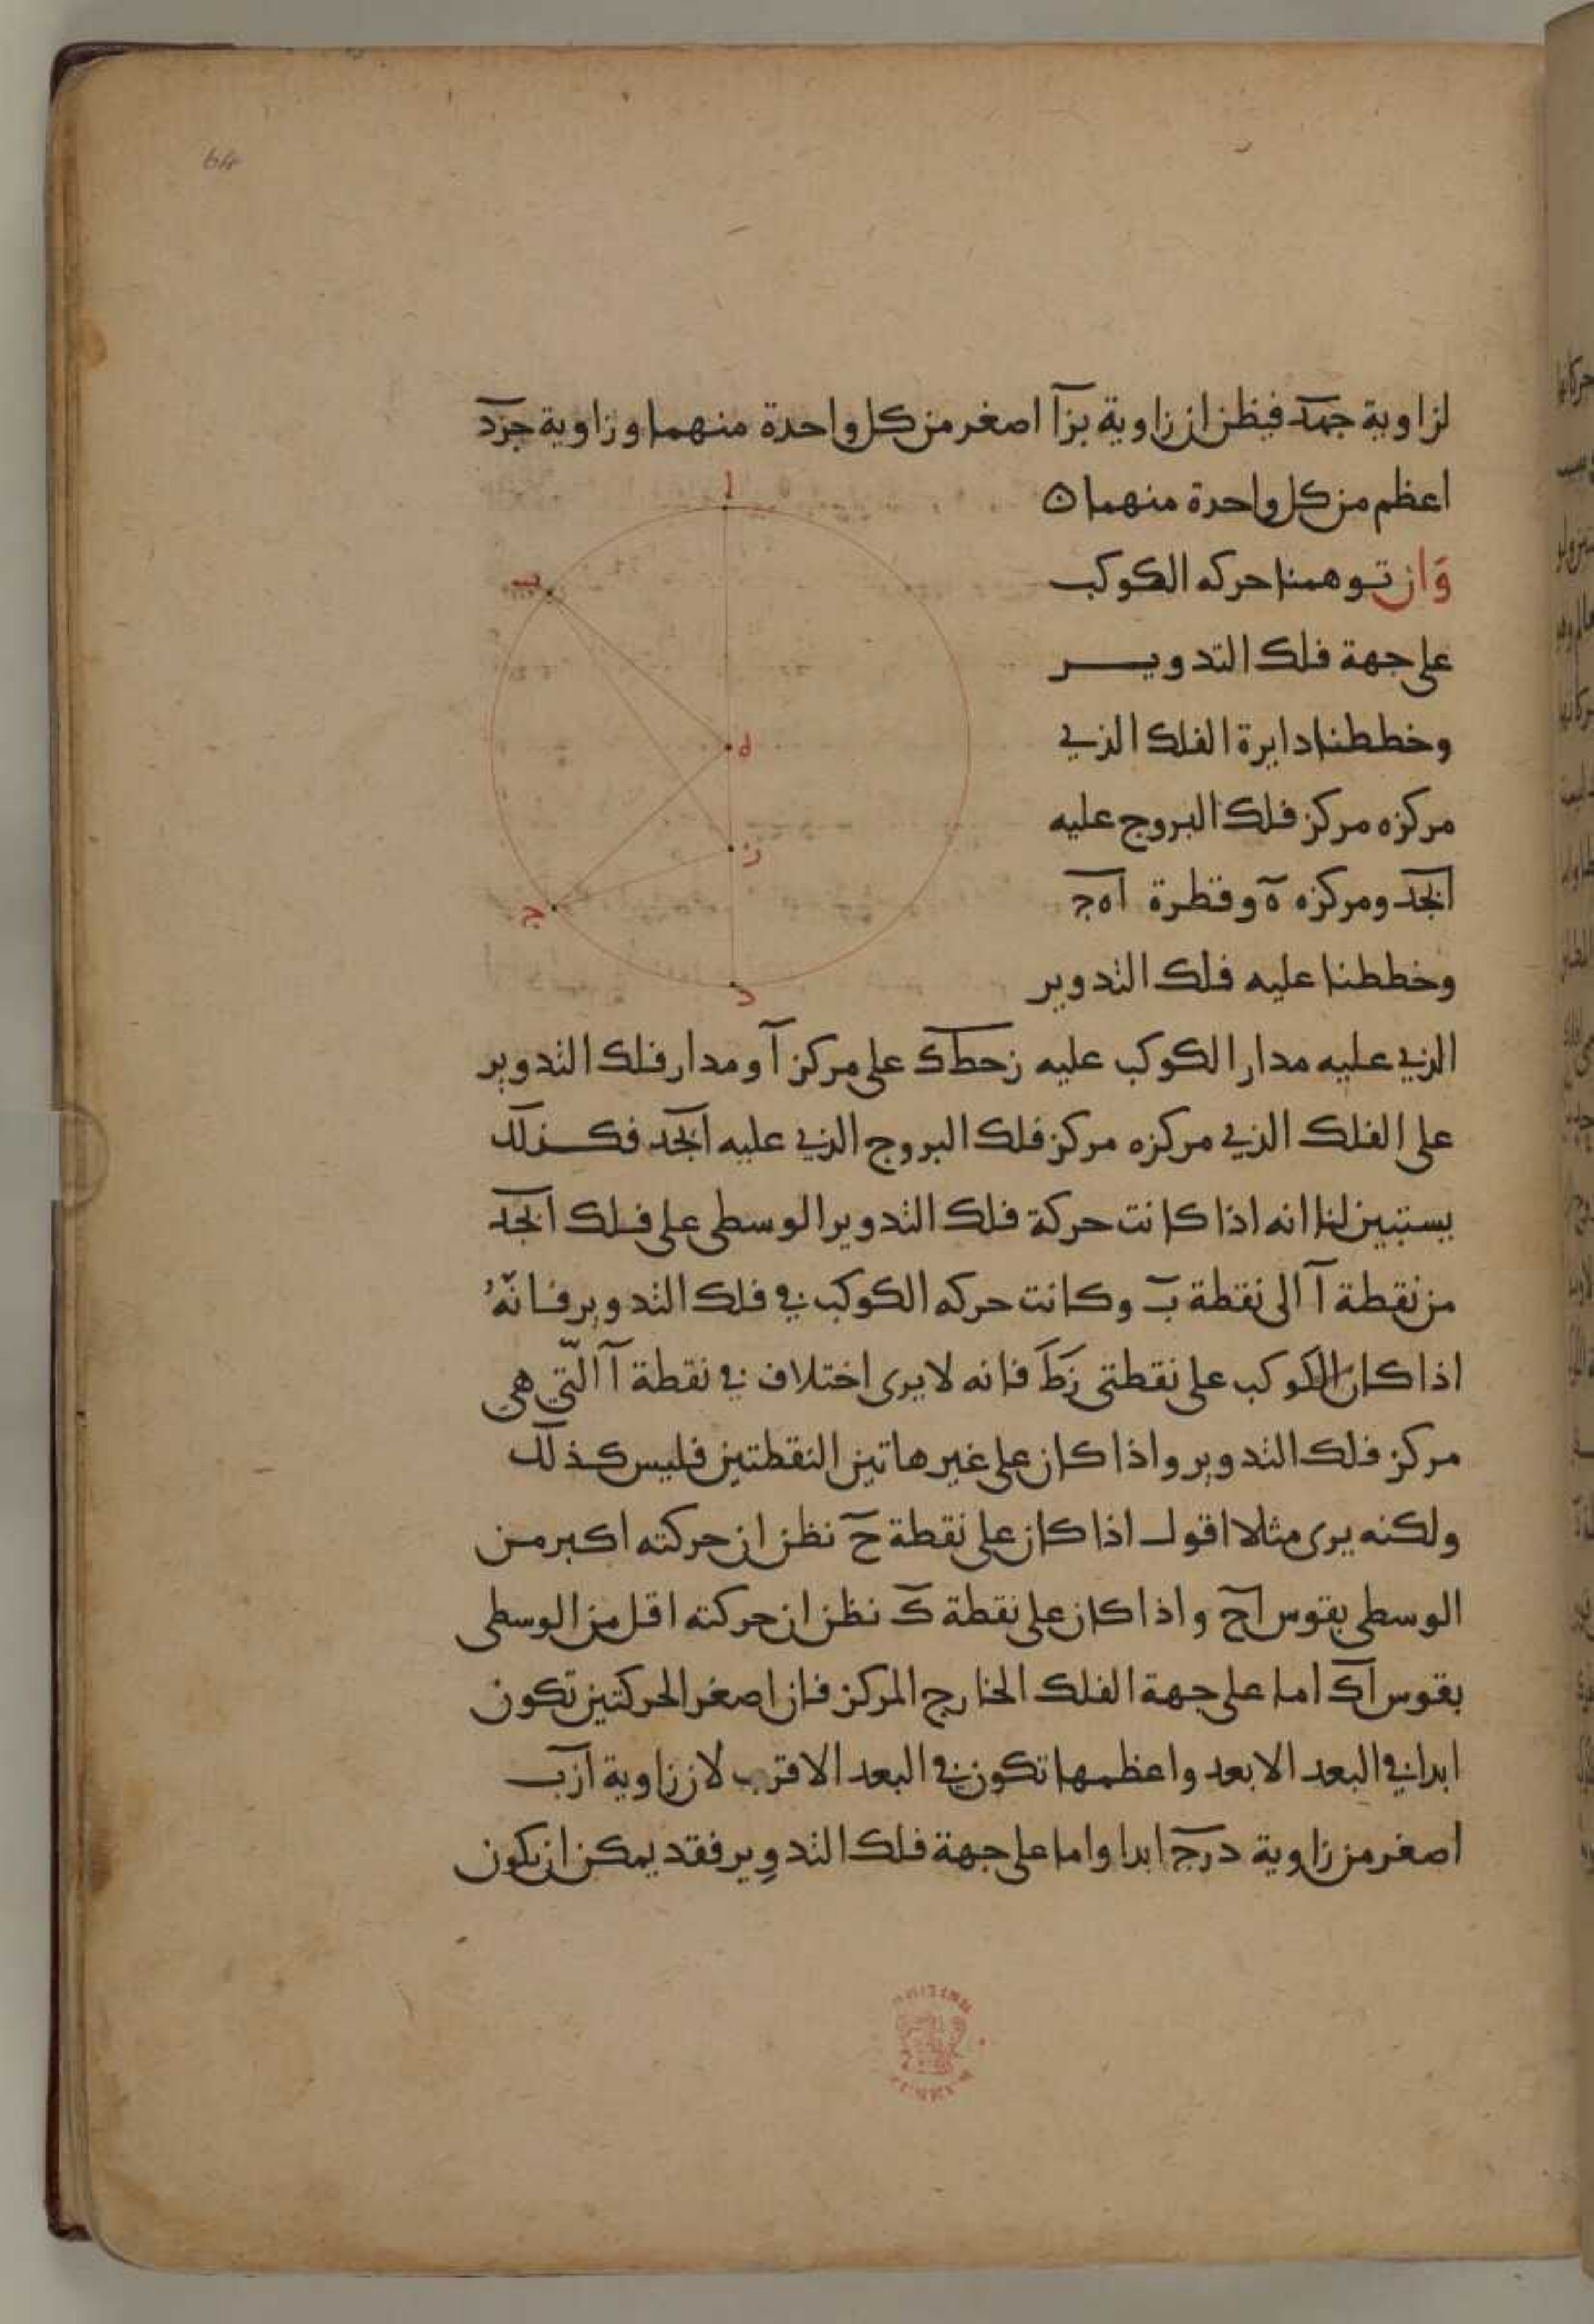 64
لزاوية جهد فيظن ان زاوية بزا اصغر من كل واحدة منهما وزاوية جزد
اعظم من كل واحدة منهما ن
وان توهمنا حركه الكوكب
على جهة فلك التدوير
وخططنا دايرة الفلك الذي
مركزه مركز فلك البروج عليه
ابجد ومركزه ه وقطرة اهج
وخططنا عليه فلك التدوير
الذي عليه مدار الكوكب عليه زحطك على مركز ا ومدار فلك التدوير
على الفلك الذي مركزه مركز فلك البروج الذي عليه ابجد فكذلك
يستبين لنا انه اذا كانت حركة فلك التدوير الوسطى على فلك ابجد
من نقطة ا الى نقطة ب وكانت حركه الكوكب في فلك التدوير فانّهُ
اذا كان الكوكب على نقطتى زط فانه لا يرى اختلاف في نقطة ا الّتي هي
مركز فلك التدوير واذا كان على غير هاتين النقطتين فليس كذلك
ولكنه يرى مثلا اقول اذا كان على نقطة ح نظن ان حركته اكبر من
الوسطى بقوس اح واذا كان على نقطة ك نظن ان حركته اقل من الوسطى
بقوس اك اما على جهة الفلك الخارج المركز فان اصغر الحركتين تكون
ابدا في البعد الابعد واعظمها تكون في البعد الاقرب لان زاوية ازب
اصغر من زاوية درج ابدا واما على جهة فلك التدوير فقد يمكن ان يكون
ا
ب
ه
ز
ج
د